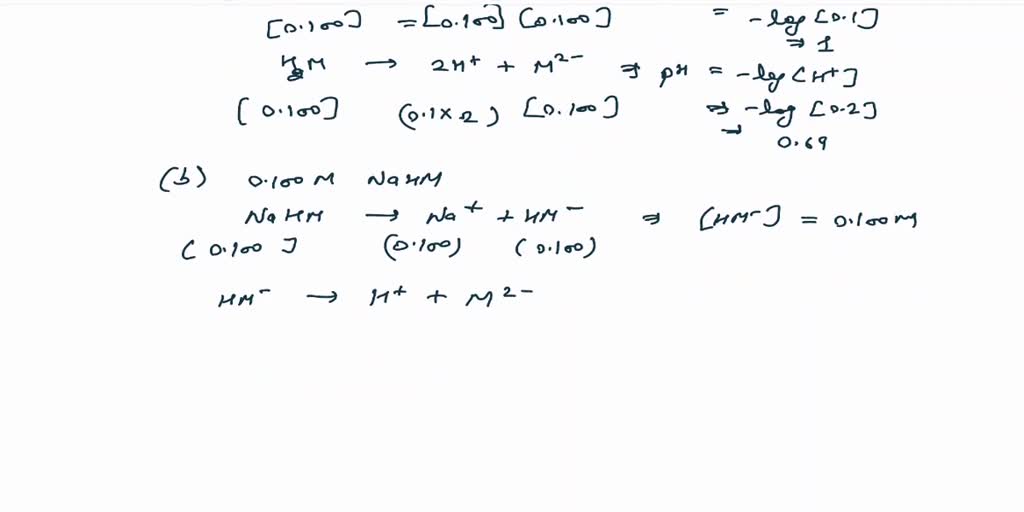 [0.100] = [0.100] [0.100] = -log [0.1]
⇒ 1
H2M → 2H+ + M2- ⇒ pH = -log [H+]
[0.100] (0.1×2) [0.100] ⇒ -log [0.2]
→ 0.69
(b) 0.100 M NaHM
NaHM → Na+ + HM- ⇒ [HM-] = 0.100M
[0.100] (0.100) (0.100)
HM- → H+ + M2-